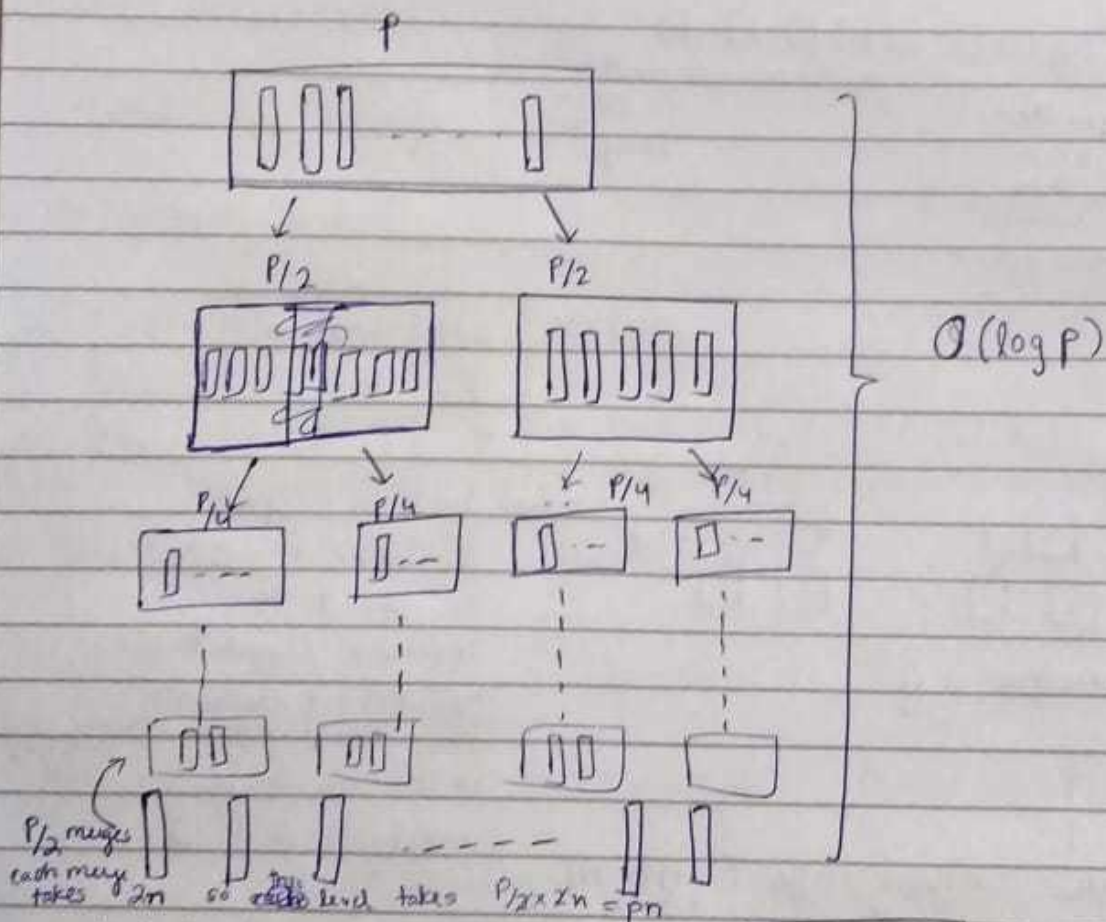 P
P/2 P/2
O(log p)
P/4 P/4 P/4 P/4
P/2 merges
each merge
takes 2n so this level takes P/2 x 2n = pn